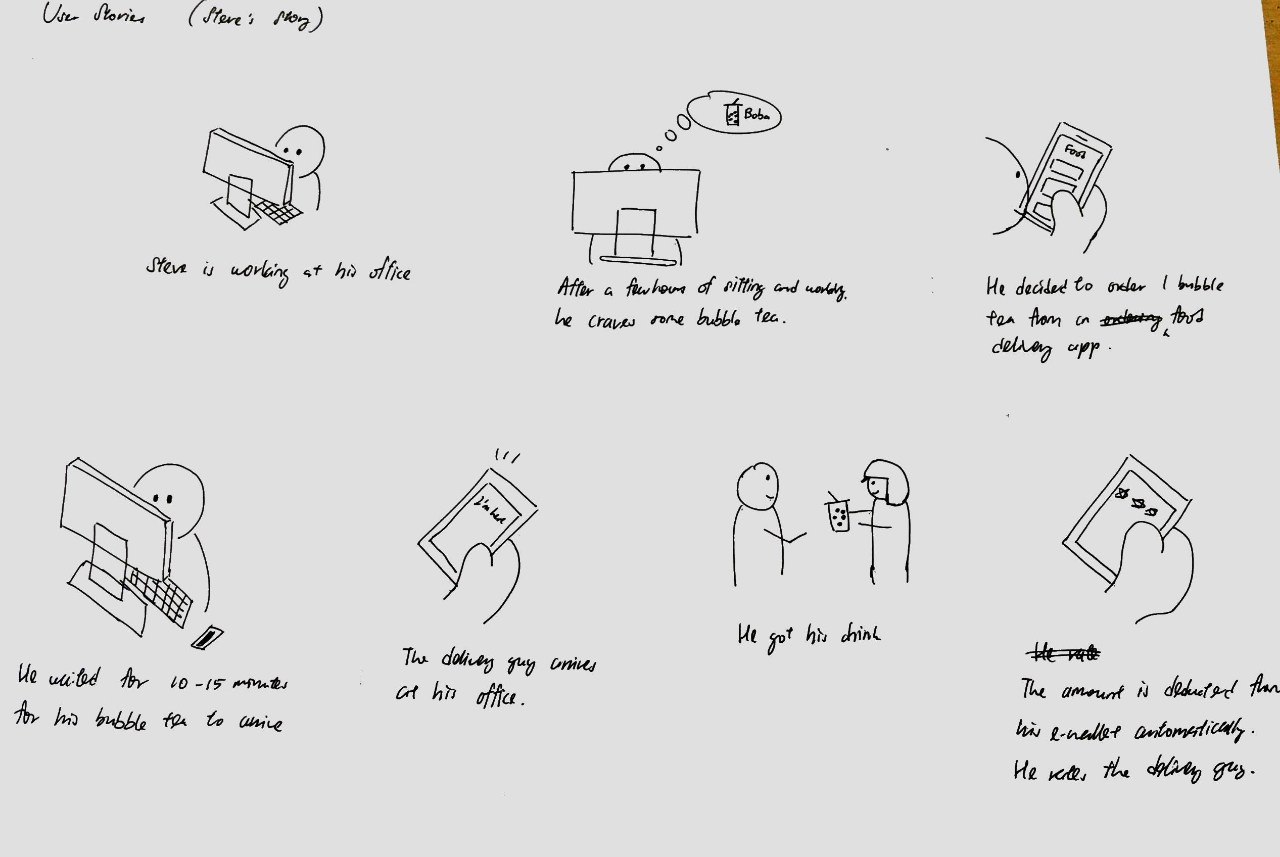 User Stories (Steve's Story)
Boba
Food
Steve is working at his office
After a few hours of sitting and working,
he craves some bubble tea.
He decided to order 1 bubble
tea from an ordering food
delivery app.
I'm here
He waited for 10-15 minutes
for his bubble tea to arrive
The delivery guy arrives
at his office.
He got his drink
He rate
The amount is deducted from
his e-wallet automatically.
He rates the delivery guy.